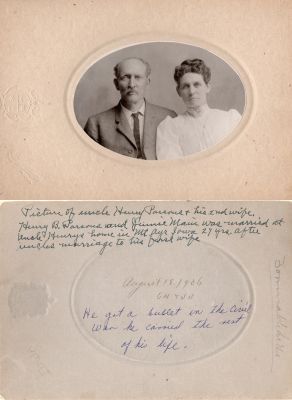 Picture of uncle Henry Parsons & his 2nd wife.
Henry B. Parsons and Jennie Main was married at
uncle Henrys home in Mt Ayr Iowa 27 yrs. after
uncles marriage to his first wife
August 18, 1906
He got a bullet in the Civil
War he carried the rest
of his life.